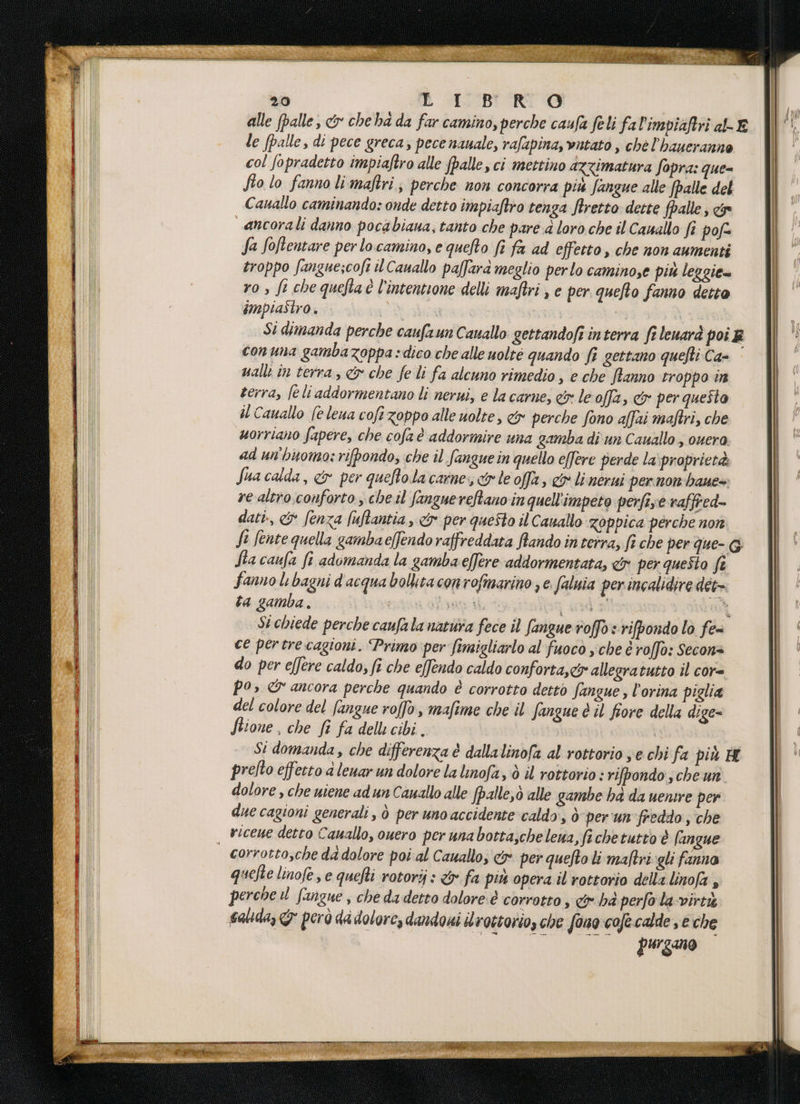 20 LIBRO
alle ſpalle, & che hà da far camino, perche cauſa ſe li fa l'impiaſtri al- E
le ſpalle, di pece greca, pece nauale, raſapina, vntato, che l'haueranno
col ſopradetto impiaſtro alle ſpalle, ci mettino azzimatura ſopra: que=
ſto lo fanno li maſtri, perche non concorra più ſangue alle ſpalle del
Cauallo caminando: onde detto impiaſtro tenga ſtretto dette ſpalle, &
ancora li danno poca biaua, tanto che pare à loro che il Cauallo ſi poſ=
ſa ſoſtentare per lo camino, e queſto ſi fa ad effetto, che non aumenti
troppo ſangue; coſi il Cauallo paſſarà meglio per lo camino, e più leggie=
ro, ſi che queſta è l'intentione delli maſtri, e per queſto fanno detto
impiaſtro.
Si dimanda perche cauſa un Cauallo gettandoſi in terra ſi leuarà poi F
con una gamba zoppa: dico che alle uolte quando ſi gettano queſti Ca=
ualli in terra, & che ſe li fa alcuno rimedio, e che ſtanno troppo in
terra, ſe li addormentano li nerui, e la carne, & le oſſa, & per queſto
il Cauallo ſe leua coſi zoppo alle uolte, & perche ſono aſſai maſtri, che
uorriano ſapere, che coſa è addormire una gamba di un Cauallo, ouero
ad un'huomo: riſpondo, che il ſangue in quello eſſere perde la proprietà
ſua calda, & per queſto la carne, & le oſſa, & li nerui per non haue=
re altro conforto, che il ſangue reſtano in quell'impeto perſi, e raffred=
dati, & ſenza ſuſtantia, & per queſto il Cauallo zoppica perche non
ſi ſente quella gamba eſſendo raffreddata ſtando in terra, ſi che per que- G
ſta cauſa ſi adomanda la gamba eſſere addormentata, & per queſto ſi
fanno li bagni d'acqua bollita con roſmarino, e ſaluia per incalidire det=
ta gamba.
Si chiede perche cauſa la natura fece il ſangue roſſo: riſpondo lo fe=
ce per tre cagioni. Primo per ſimigliarlo al fuoco, che è roſſo: Secon=
do per eſſere caldo, ſi che eſſendo caldo conforta, & allegra tutto il cor=
po, & ancora perche quando è corrotto detto ſangue, l'orina piglia
del colore del ſangue roſſo, maſime che il ſangue è il fiore della dige=
ſtione, che ſi fa delli cibi.
Si domanda, che differenza è dalla linoſa al rottorio, e chi fa più H
preſto effetto à leuar un dolore la linoſa, ò il rottorio: riſpondo, che un
dolore, che uiene ad un Cauallo alle ſpalle, ò alle gambe hà da uenire per
due cagioni generali, ò per uno accidente caldo, ò per un freddo, che
riceue detto Cauallo, ouero per una botta, che leua, ſi che tutto è ſangue
corrotto, che dà dolore poi al Cauallo, & per queſto li maſtri gli fanno
queſte linoſe, e queſti rotorij: & fa più opera il rottorio della linoſa,
perche il ſangue, che da detto dolore è corrotto, & hà perſo la virtù
calida, & però dà dolore, dandoui il rottorio, che ſono coſe calde, e che
purgano